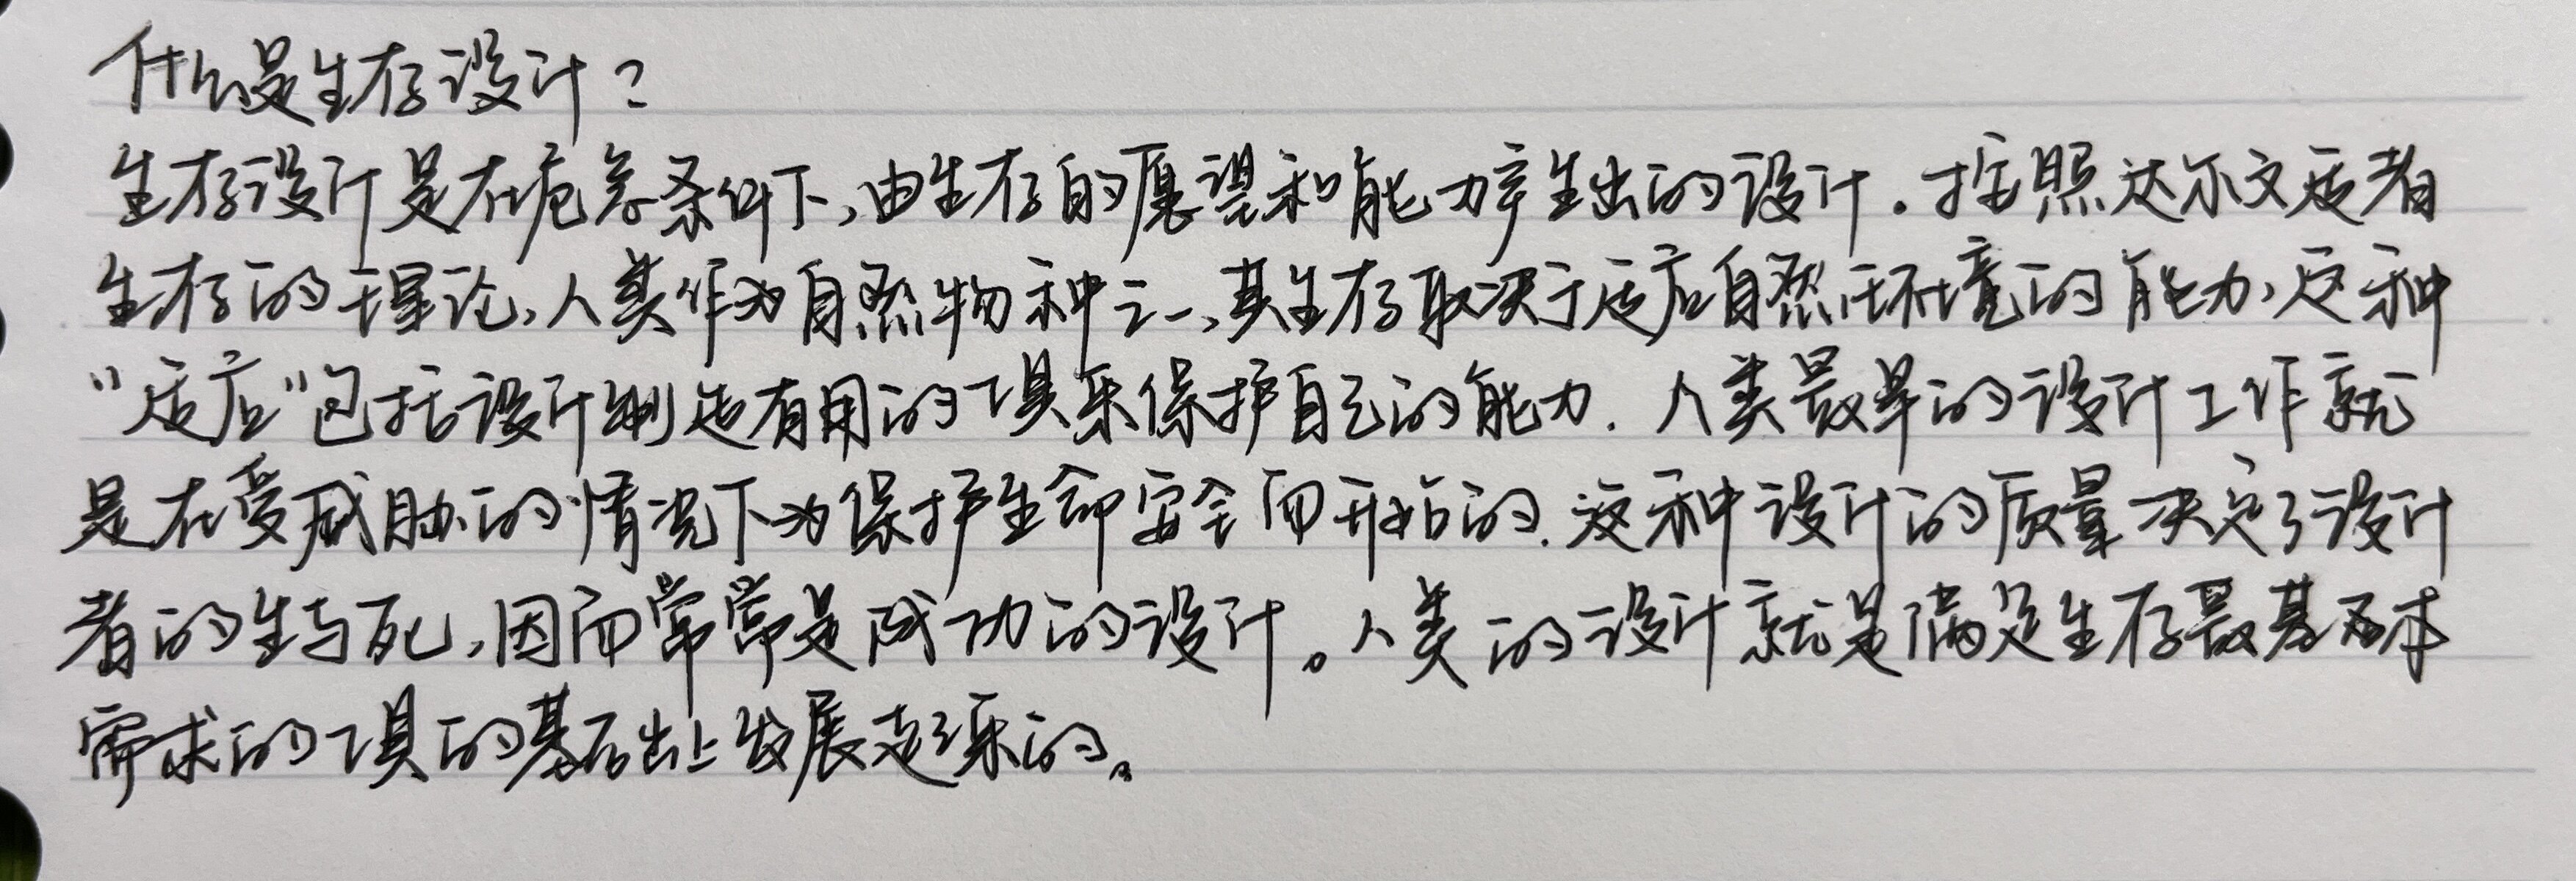 什么是生存设计？
生存设计是在危急条件下,由生存的愿望和能力产生出的设计.按照达尔文适者
生存的理论,人类作为自然物种之一,其生存取决于适应自然环境的能力,这种
“适应”包括设计制造有用的工具来保护自己的能力.人类最早的设计工作就
是在受威胁的情况下为保护生命安全而开始的.这种设计的质量决定了设计
者的生与死,因而常常是成功的设计。人类的设计就是满足生存最基本
需求的工具的基础上发展起来的。